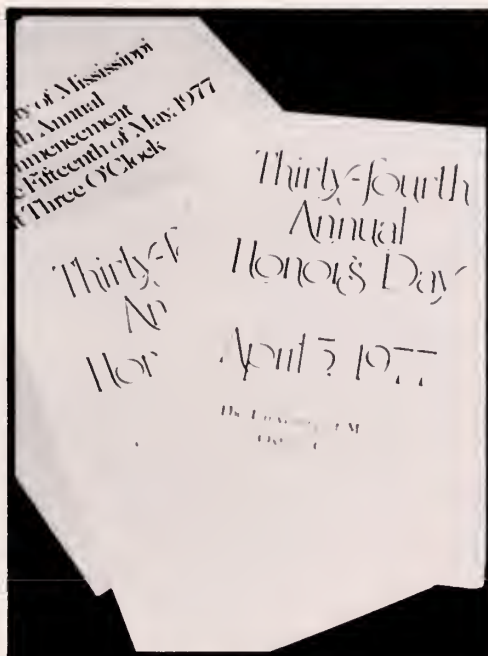 of Mississippi
Annual
Fifteenth of May, 1977
Three O'Clock
Thirty-
Thirty-fourth
Annual
Honors Day
April 5 1977